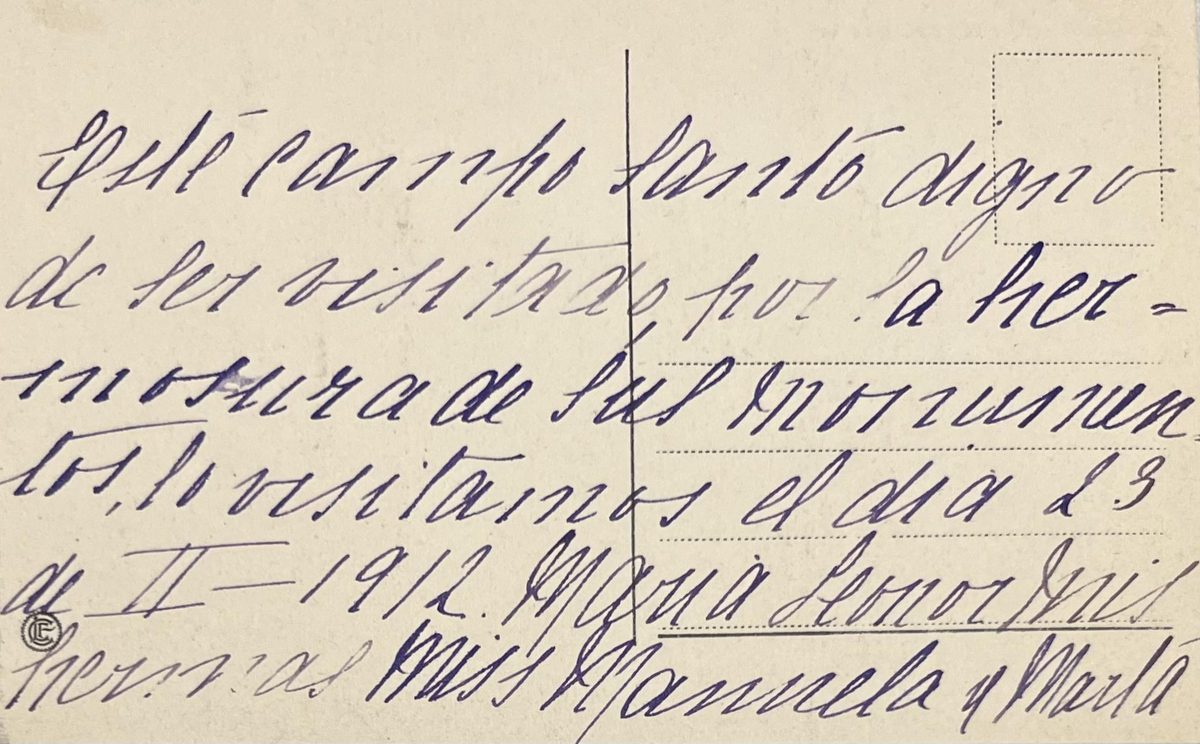 Esté campo santo digno
de ser visitado por la her=
mosura de sus monumen
tos, lo visitamos el dia 23
de II-1912. Maria Leonor Mis
hermnas Miss Manuela y Marta